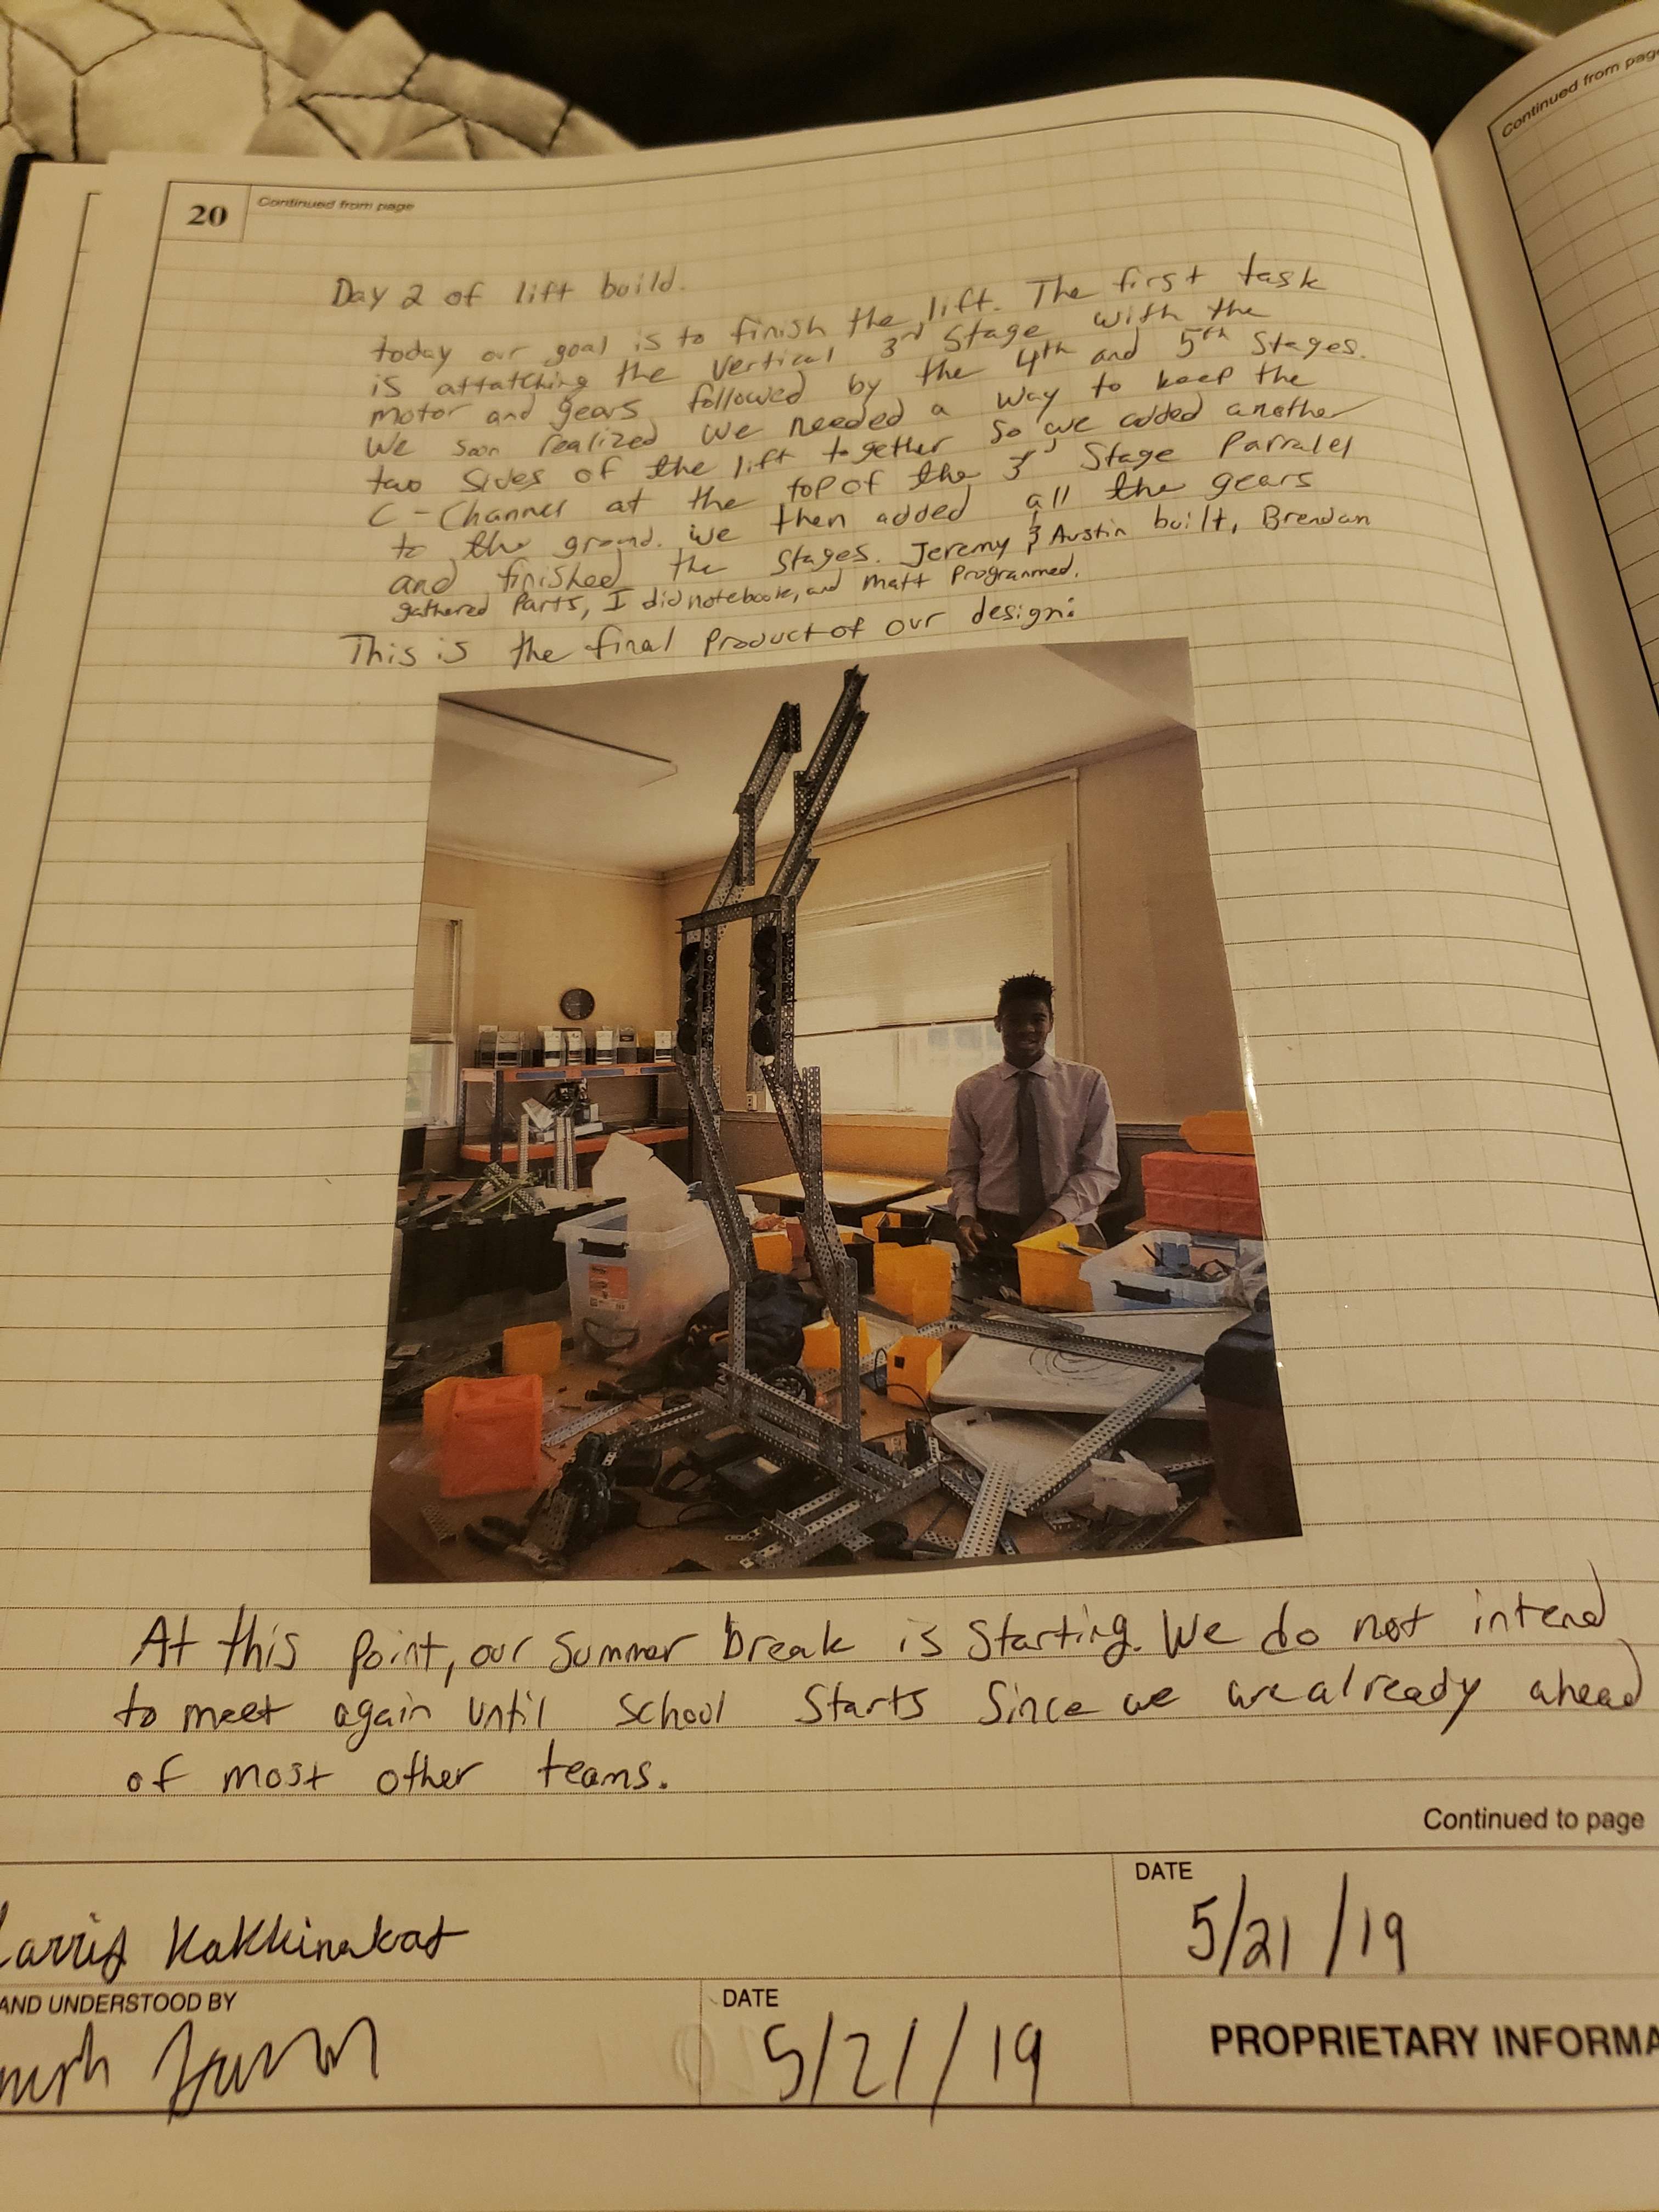 20
Continued from page
Continued from page
Day 2 of lift build.
today our goal is to finish the lift. The first task
is attatching the vertical 3rd stage with the
motor and gears followed by the 4th and 5th stages.
We soon realized we needed a way to keep the
two sides of the lift together so we added another
C-Channel at the top of the 3rd stage parralel
to the ground. we then added all the gears
and finished the stages. Jeremy & Austin built, Brendan
gathered parts, I did notebook, and matt programmed.
This is the final product of our design:
At this point, our summer break is starting. We do not intend
to meet again until school starts since we are already ahead
of most other teams.
Continued to page
Kakkinakat
DATE
5/21/19
AND UNDERSTOOD BY
DATE
5/21/19
PROPRIETARY INFORMA